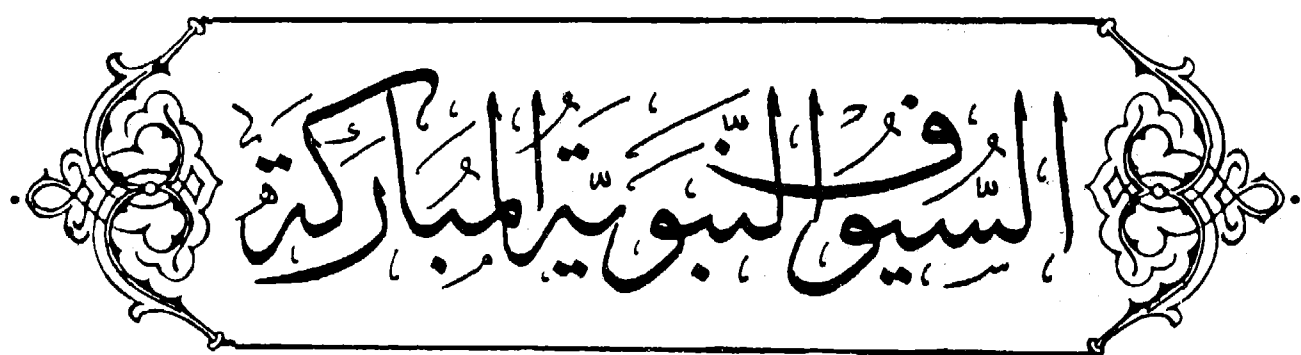 السُّيوفُ النَّبَويَّةُ المُبارَكَة